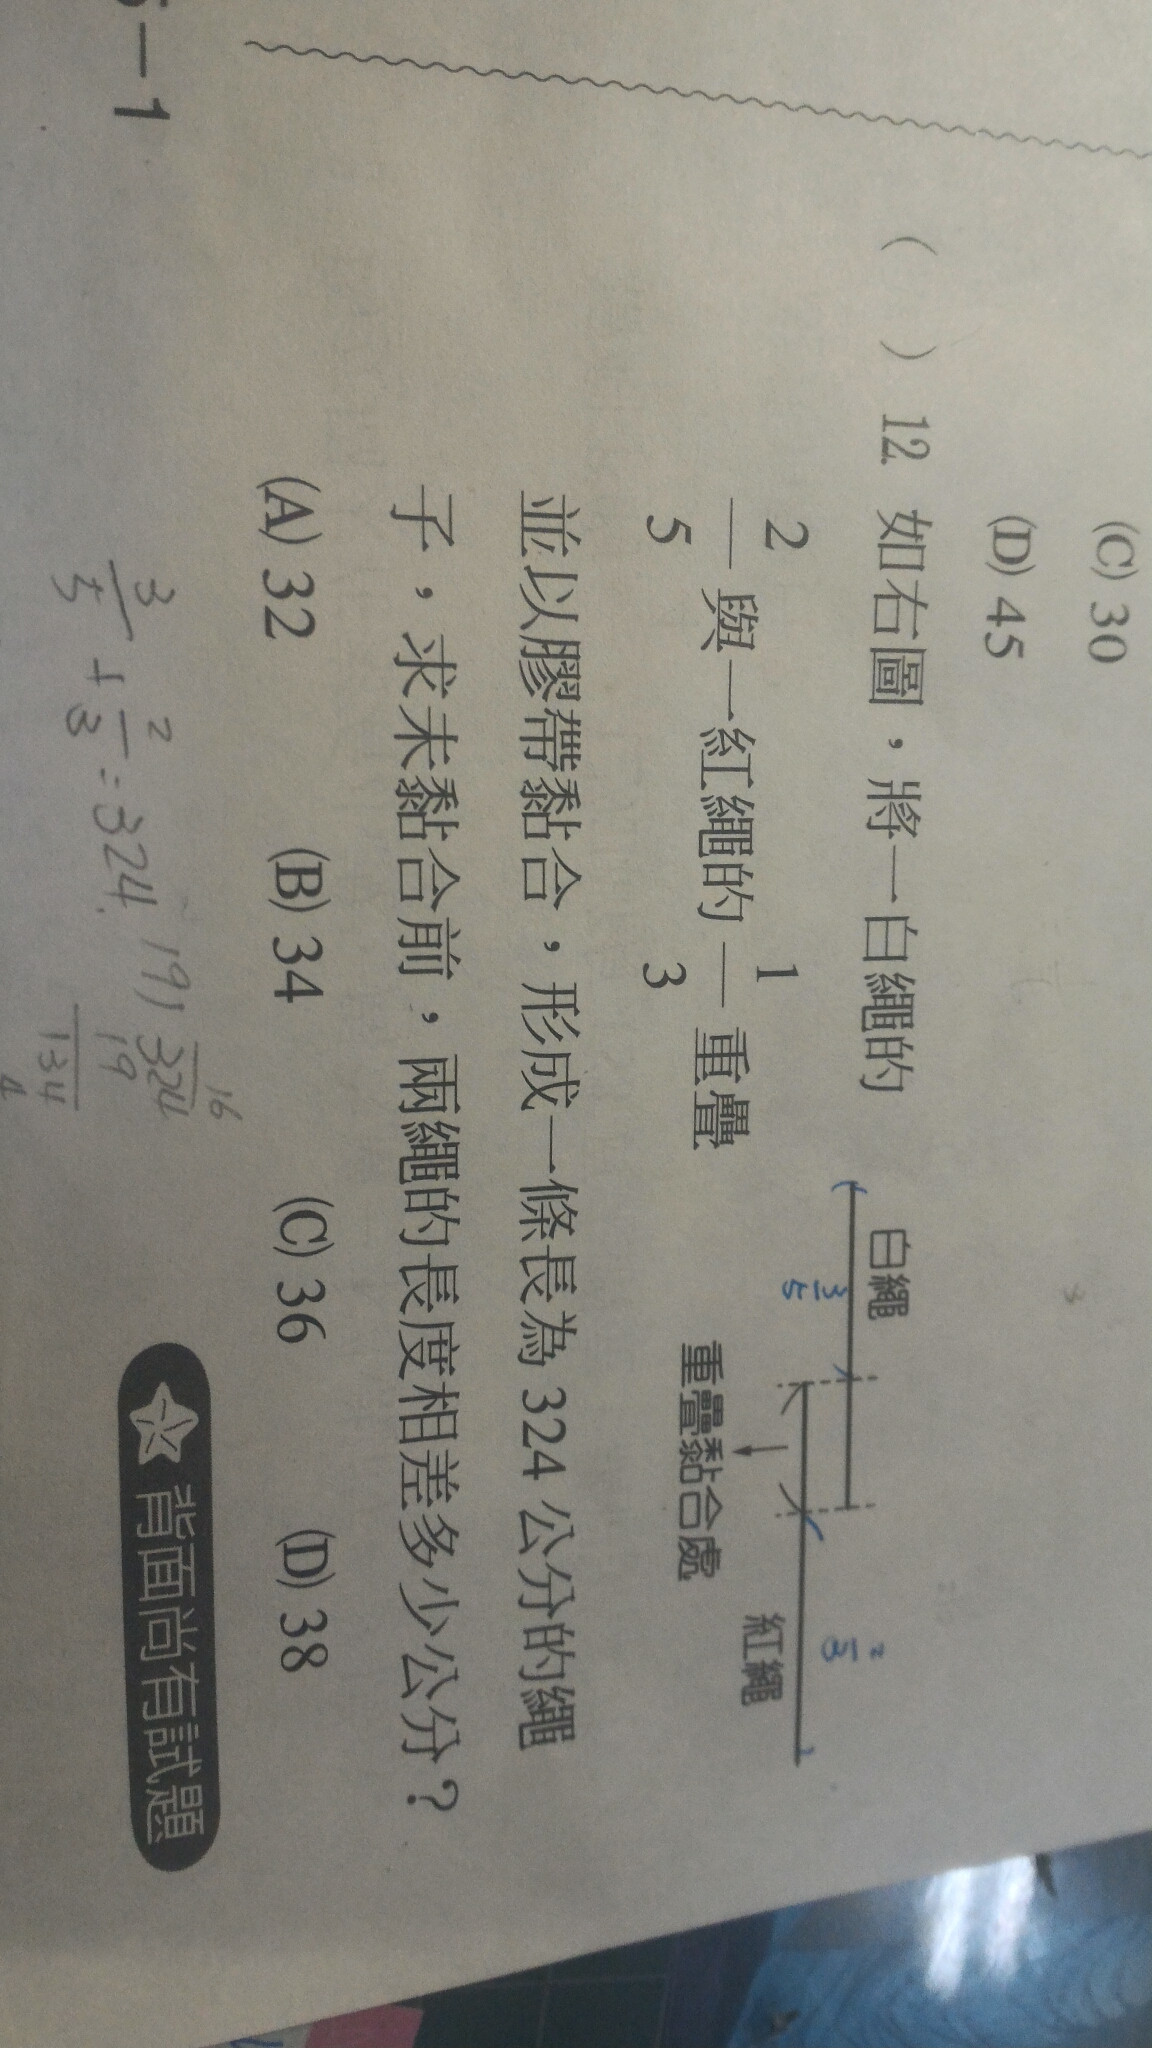 (C) 30
(D) 45
(　) 12. 如右圖，將一白繩的
2/5 與一紅繩的 1/3 重疊
並以膠帶黏合，形成一條長為 324 公分的繩
子，求未黏合前，兩繩的長度相差多少公分？
(A) 32 (B) 34 (C) 36 (D) 38
白繩
3/5
重疊黏合處
紅繩
2/3
3/5 + 2/3 = 324
16
19)324
19
134
背面尚有試題
-1